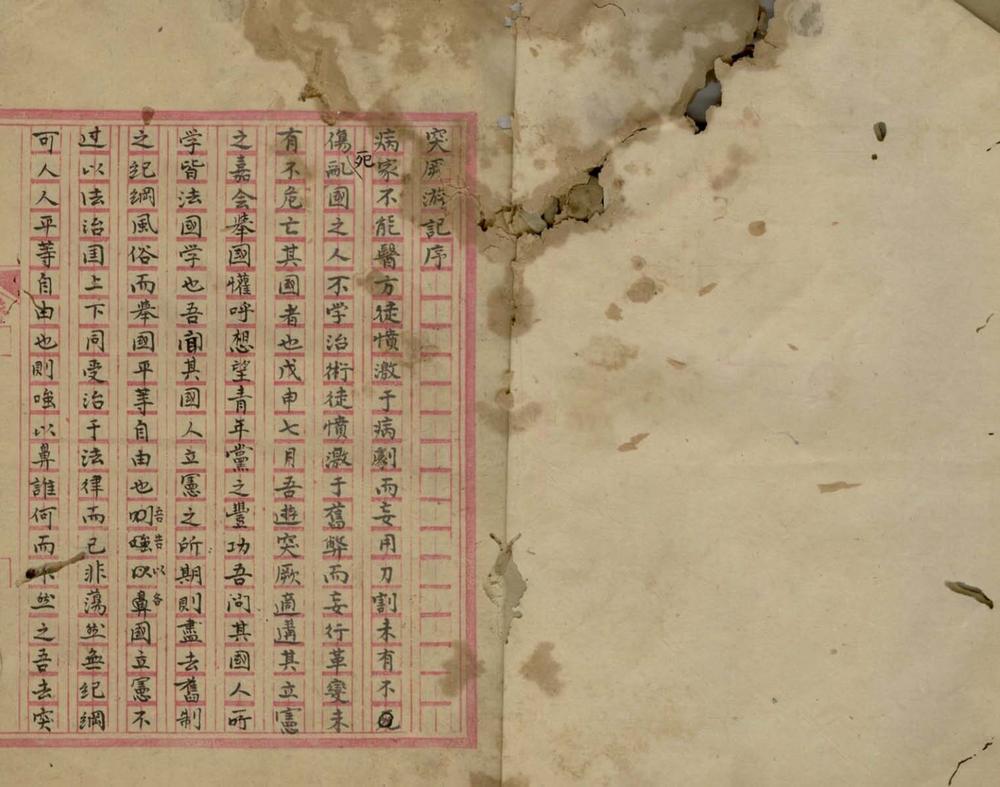 突厥游記序
病家不能醫方徒憤激于病劇而妄用刀割未有不
傷死亂國之人不学治術徒憤激于舊弊而妄行革變未
有不危亡其國者也戊申七月吾遊突厥適遘其立憲
之嘉会舉國懽呼想望青年黨之豐功吾问其國人所
学皆法國学也吾聞其國人立憲之所期則盡去舊制
之紀綱風俗而舉國平等自由也吾告以各國立憲不
过以法治国上下同受治于法律而已非蕩然無紀綱
可人人平等自由也則嗤以鼻誰何而不然之吾去突